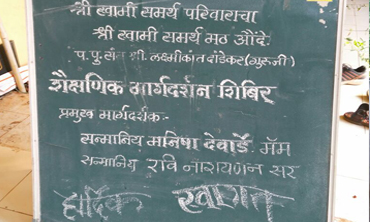 श्री स्वामी समर्थ परिवाराचा
श्री स्वामी समर्थ मठ औंदे.
प.पु.संत श्री लक्ष्मीकांत दांडेकर(गुरूजी)
शैक्षणिक मार्गदर्शन शिबिर
प्रमुख मार्गदर्शक:-
सन्मानिय मनिषा देवार्डे मॅम
सन्मानिय रवि नारायणन सर
हार्दिक स्वागत